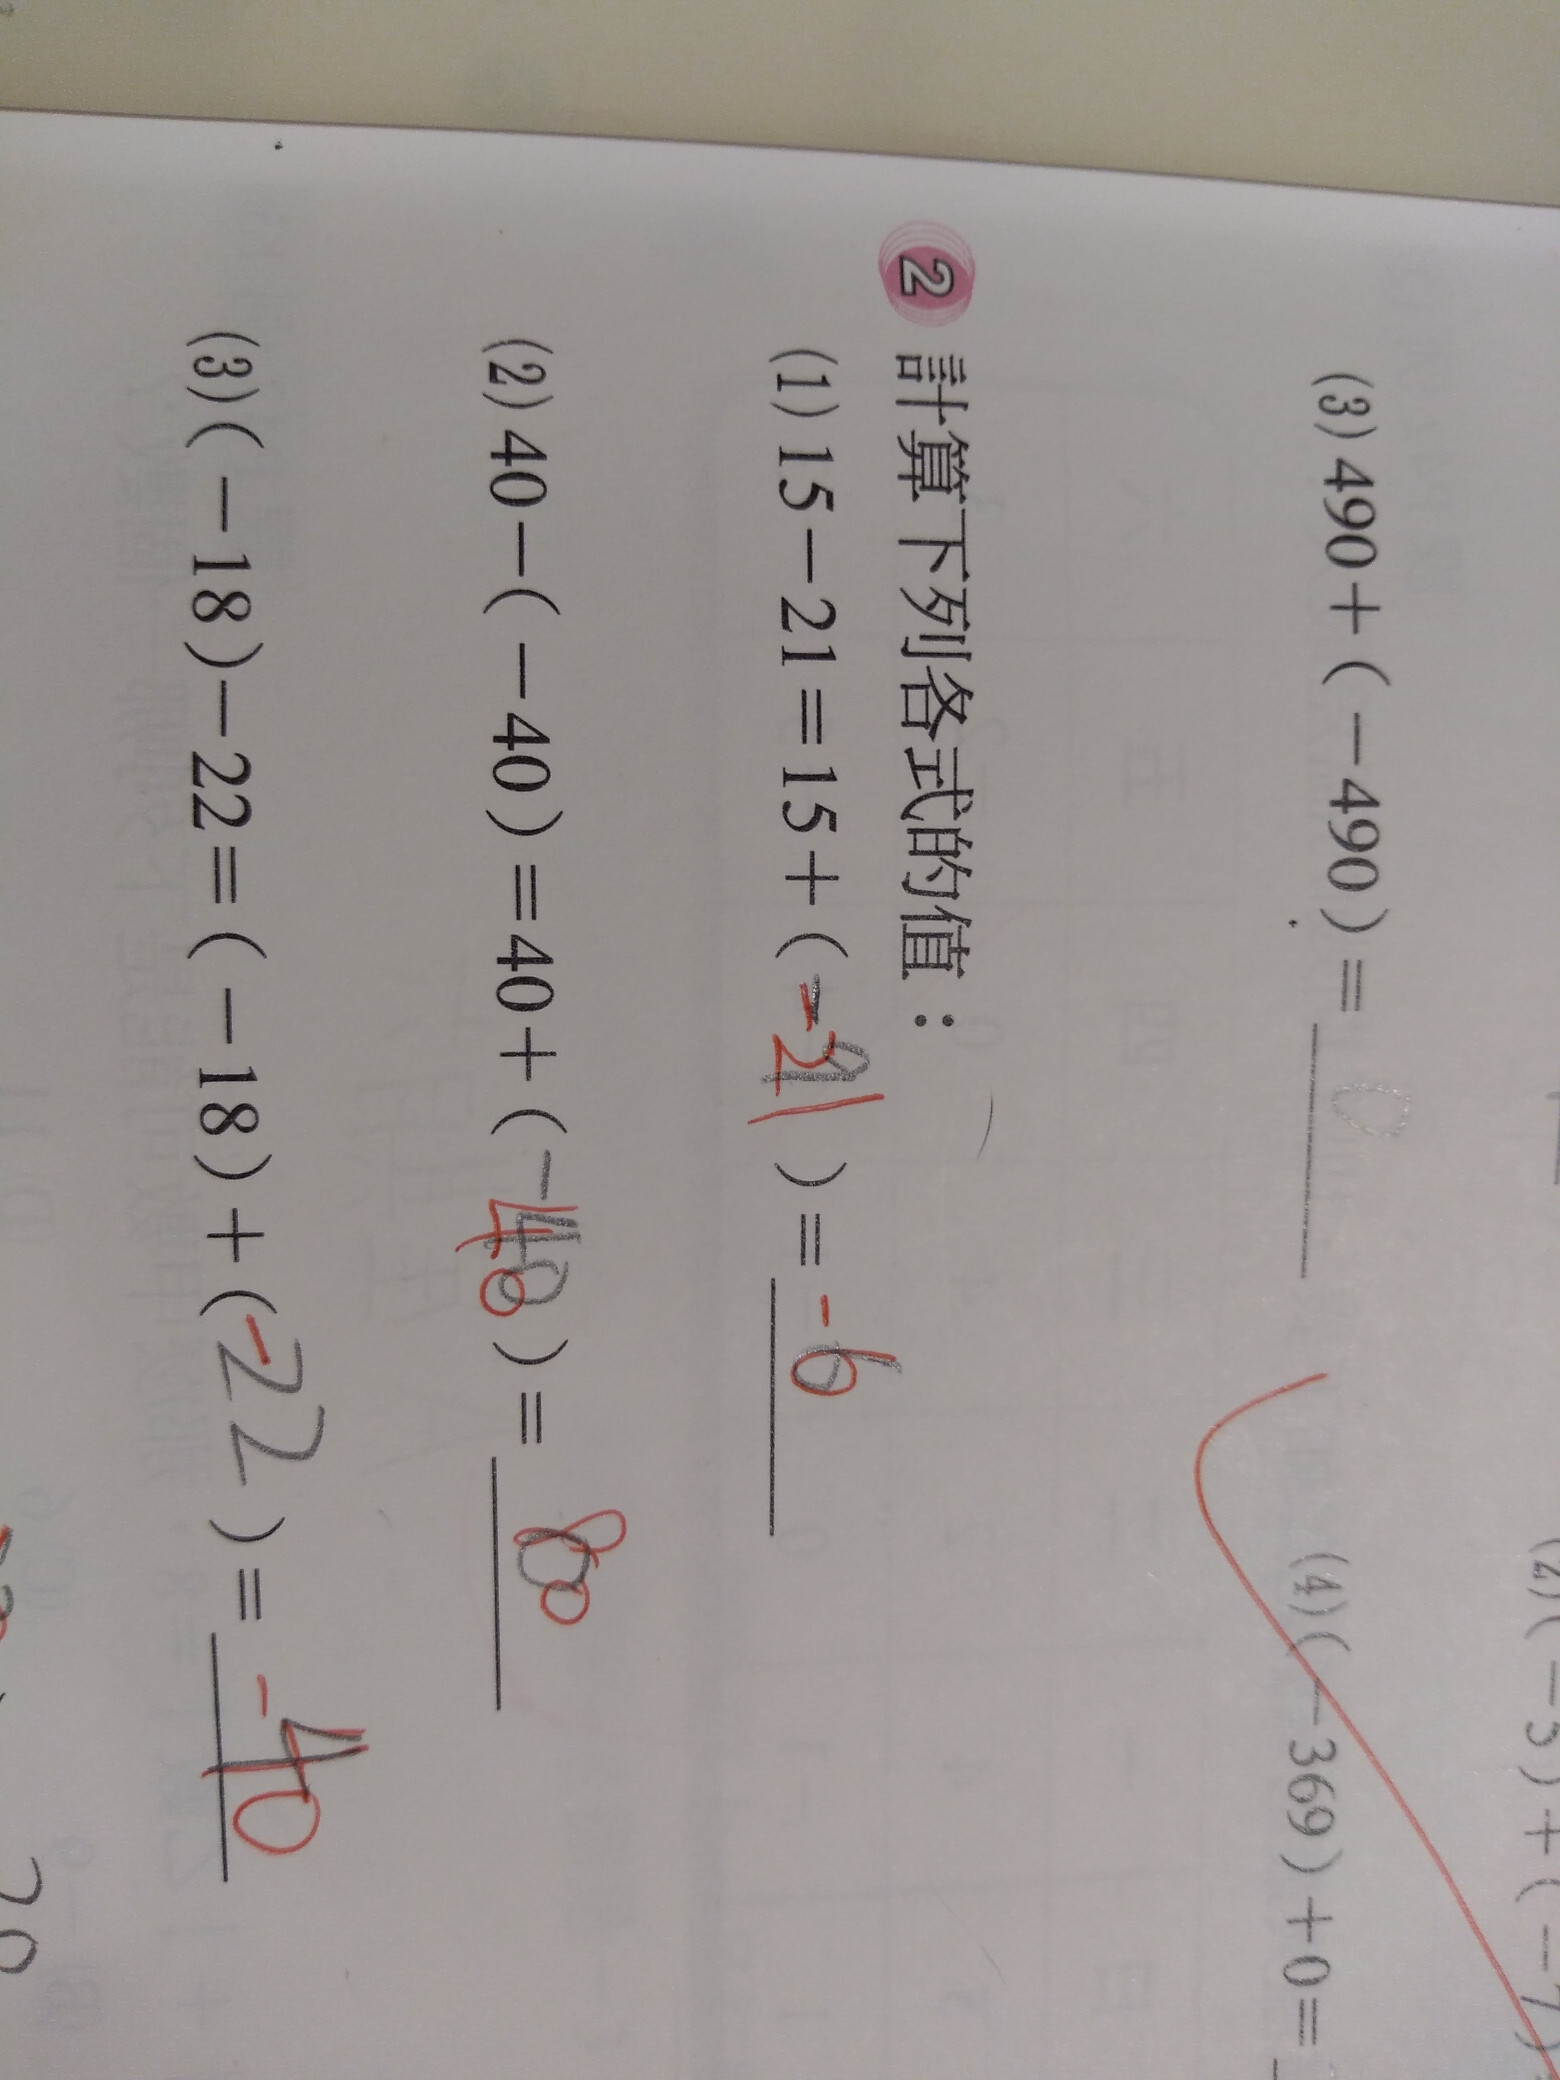 (2)(-5)+(-7)
(3) 490+(-490)=0 (4)(-369)+0=
2 計算下列各式的值：
(1) 15-21=15+(-21)=-6
(2) 40-(-40)=40+(40)=80
(3)(-18)-22=(-18)+(-22)=-40